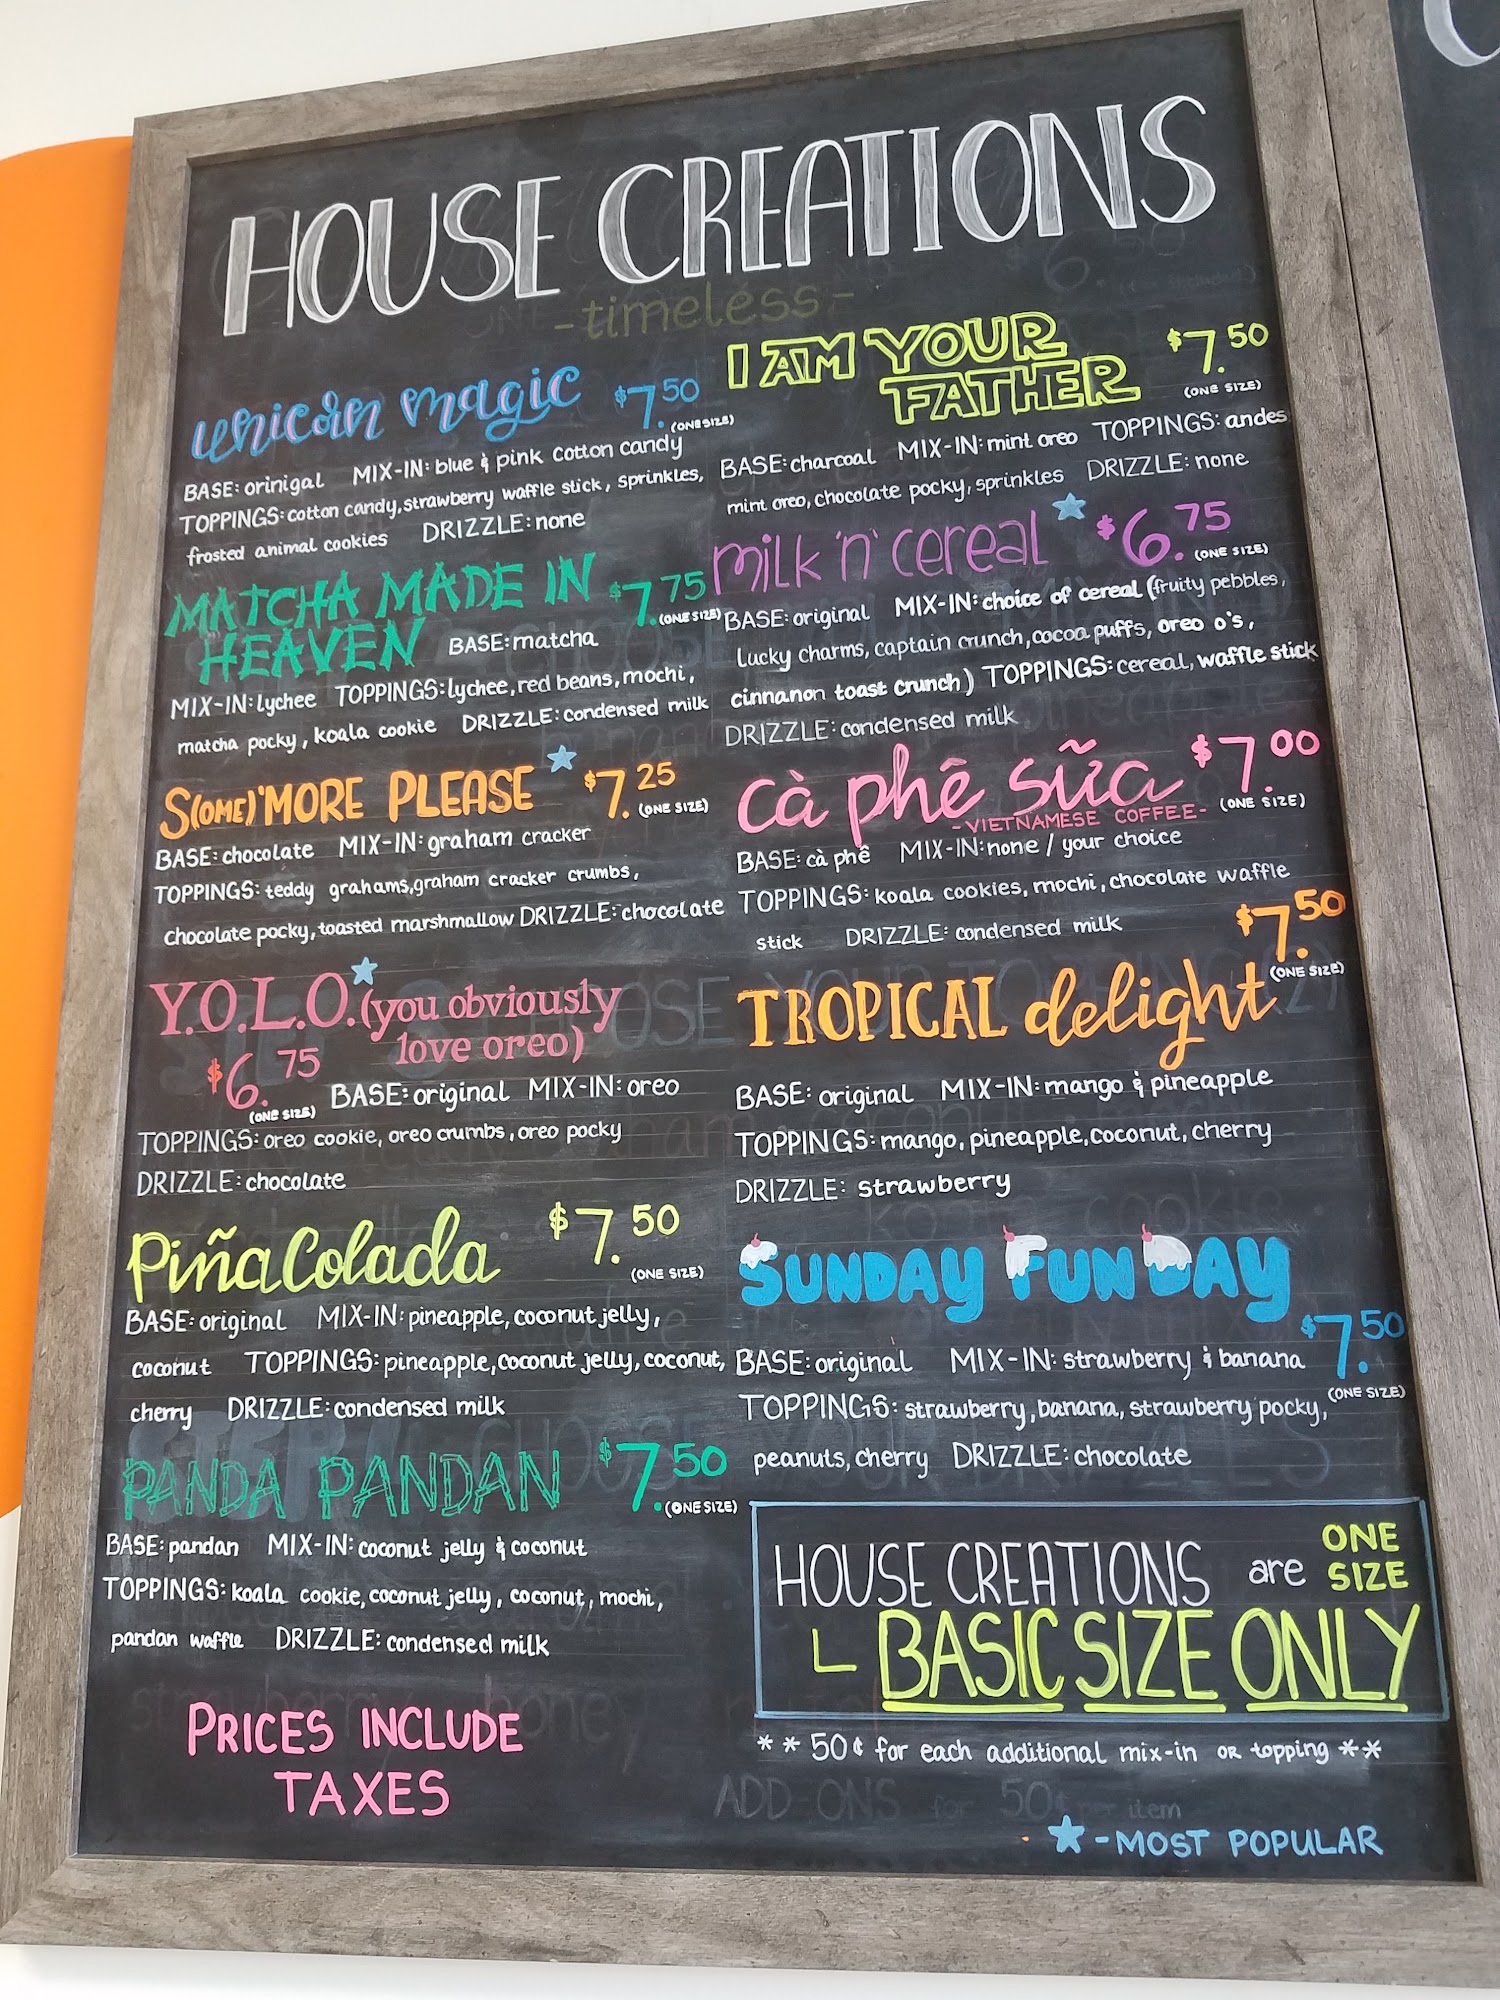 HOUSE CREATIONS
-timeless-
unicorn magic $7.50
(ONE SIZE)
BASE: orinigal MIX-IN: blue & pink cotton candy
TOPPINGS: cotton candy, strawberry waffle stick, sprinkles,
frosted animal cookies DRIZZLE: none
MATCHA MADE IN $7.75
HEAVEN BASE: matcha (ONE SIZE)
MIX-IN: lychee TOPPINGS: lychee, red beans, mochi,
matcha pocky, koala cookie DRIZZLE: condensed milk
S(OME)'MORE PLEASE $7.25
(ONE SIZE)
BASE: chocolate MIX-IN: graham cracker
TOPPINGS: teddy grahams, graham cracker crumbs,
chocolate pocky, toasted marshmallow DRIZZLE: chocolate
Y.O.L.O. (you obviously
love oreo)
$6.75
(ONE SIZE) BASE: original MIX-IN: oreo
TOPPINGS: oreo cookie, oreo crumbs, oreo pocky
DRIZZLE: chocolate
Piña Colada $7.50
(ONE SIZE)
BASE: original MIX-IN: pineapple, coconut jelly,
coconut TOPPINGS: pineapple, coconut jelly, coconut,
cherry DRIZZLE: condensed milk
PANDA PANDAN $7.50
(ONE SIZE)
BASE: pandan MIX-IN: coconut jelly & coconut
TOPPINGS: koala cookie, coconut jelly, coconut, mochi,
pandan waffle DRIZZLE: condensed milk
PRICES INCLUDE
TAXES
I AM YOUR $7.50
FATHER (ONE SIZE)
BASE: charcoal MIX-IN: mint oreo TOPPINGS: andes
mint oreo, chocolate pocky, sprinkles DRIZZLE: none
milk 'n' cereal $6.75
(ONE SIZE)
BASE: original MIX-IN: choice of cereal (fruity pebbles,
lucky charms, captain crunch, cocoa puffs, oreo o's,
cinnanon toast crunch) TOPPINGS: cereal, waffle stick
DRIZZLE: condensed milk
cà phê sữa $7.00
-VIETNAMESE COFFEE- (ONE SIZE)
BASE: cà phê MIX-IN: none / your choice
TOPPINGS: koala cookies, mochi, chocolate waffle
stick DRIZZLE: condensed milk
$7.50
(ONE SIZE)
TROPICAL delight
BASE: original MIX-IN: mango & pineapple
TOPPINGS: mango, pineapple, coconut, cherry
DRIZZLE: strawberry
SUNDAY FUN DAY
$7.50
BASE: original MIX-IN: strawberry & banana
(ONE SIZE)
TOPPINGS: strawberry, banana, strawberry pocky,
peanuts, cherry DRIZZLE: chocolate
HOUSE CREATIONS are ONE
SIZE
BASIC SIZE ONLY
** 50¢ for each additional mix-in OR topping **
ADD ONS for 50¢ per item
★ - MOST POPULAR